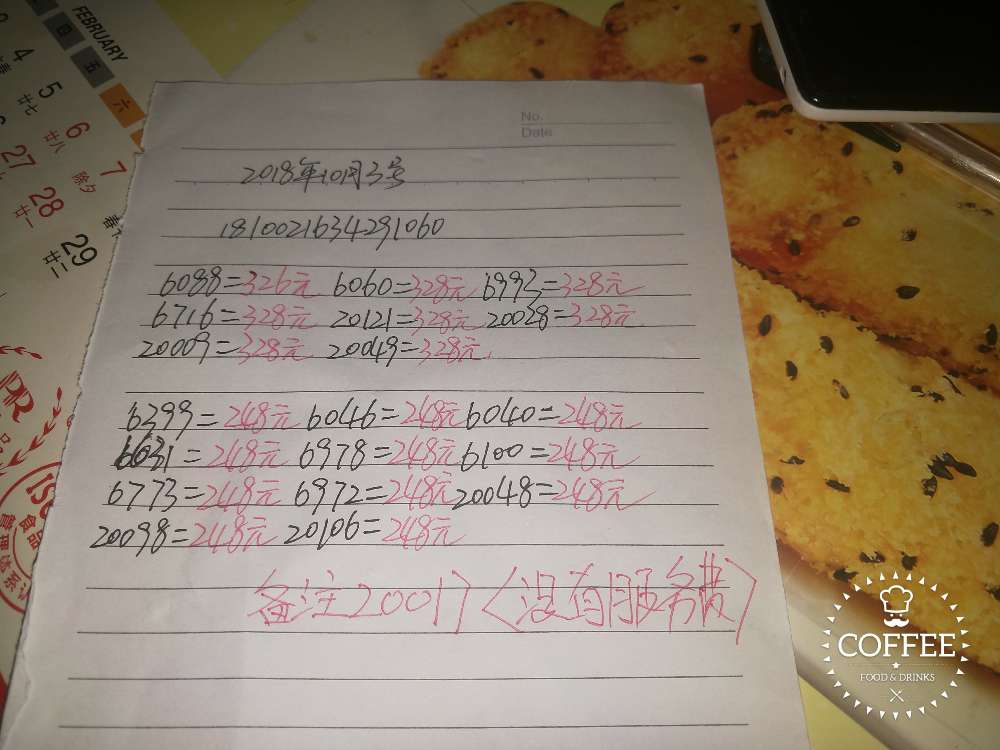 FEBRUARY
四
五
六
4
5
廿七
6
廿八
7
除夕
27
28
廿一
29
廿二
No.
Date
2018年10月3号
1810021634291060
6088=326元 6060=328元 6993=328元
6716=328元 20121=328元 20028=328元
20009=328元 20049=328元
6399=248元 6046=248元 6040=248元
6631=248元 6978=248元 6100=248元
6773=248元 6972=248元 20048=248元
20098=248元 20106=248元
备注20017(没有服务费)
COFFEE
FOOD & DRINKS